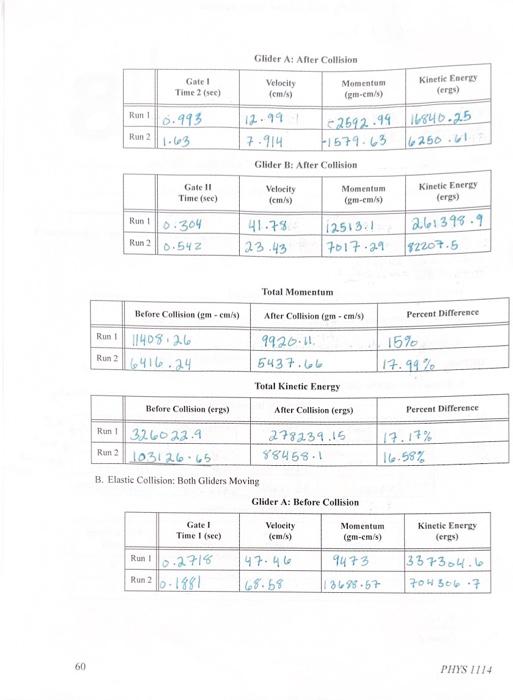 Glider A: After Collision
Gate I Time 2 (sec) Velocity (cm/s) Momentum (gm-cm/s) Kinetic Energy (ergs)
Run 1 0.993 12.99 -2592.94 16840.25
Run 2 1.63 7.914 -1579.63 6250.61
Glider B: After Collision
Gate II Time (sec) Velocity (cm/s) Momentum (gm-cm/s) Kinetic Energy (ergs)
Run 1 0.304 41.78 12513.1 261398.9
Run 2 0.542 23.43 7017.29 82207.5
Total Momentum
Before Collision (gm - cm/s) After Collision (gm - cm/s) Percent Difference
Run 1 11408.26 9920.11 15%
Run 2 6416.24 5437.66 17.99%
Total Kinetic Energy
Before Collision (ergs) After Collision (ergs) Percent Difference
Run 1 326022.9 278239.15 17.17%
Run 2 103126.65 88458.1 16.58%
B. Elastic Collision: Both Gliders Moving
Glider A: Before Collision
Gate I Time 1 (sec) Velocity (cm/s) Momentum (gm-cm/s) Kinetic Energy (ergs)
Run 1 0.2718 47.46 9473 337304.6
Run 2 0.1881 68.58 13688.57 704306.7
60 PHYS 1114